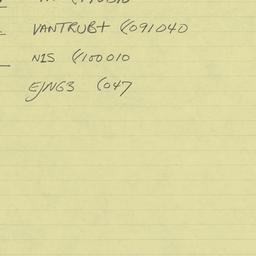 VANTRUBT (/091040
NIS (/100010
EJNG3 (047